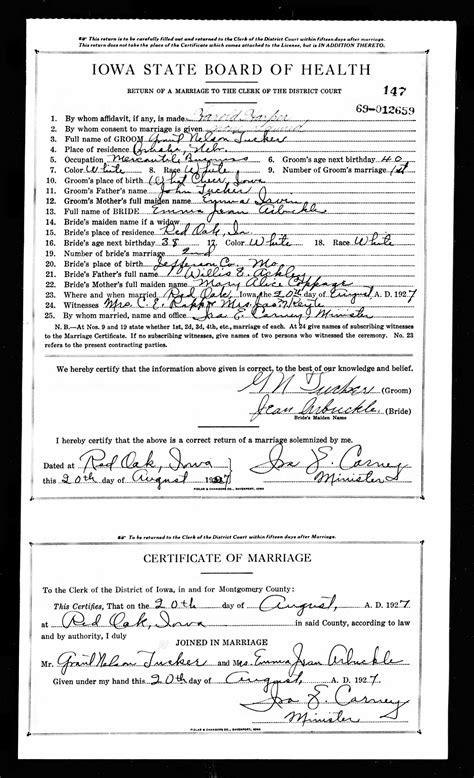 ☞ This return is to be carefully filled out and returned to the Clerk of the District Court within fifteen days after marriage.
This return does not take the place of the Certificate which comes attached to the License, but is IN ADDITION THERETO.
IOWA STATE BOARD OF HEALTH
RETURN OF A MARRIAGE TO THE CLERK OF THE DISTRICT COURT
147
69-012659
1. By whom affidavit, if any, is made Harold Harper
2. By whom consent to marriage is given
3. Full name of GROOM Grant Nelson Tucker
4. Place of residence Omaha, Nebr.
5. Occupation Mercantile Business 6. Groom's age next birthday 40
7. Color White 8. Race White 9. Number of Groom's marriage 1st
10. Groom's place of birth What Cheer, Iowa
11. Groom's Father's name John Tucker
12. Groom's Mother's full maiden name Emma Irvin
13. Full name of BRIDE Emma Jean Arbuckle
14. Bride's maiden name if a widow
15. Bride's place of residence Red Oak, Ia
16. Bride's age next birthday 38 17. Color White 18. Race White
19. Number of bride's marriage 2nd
20. Bride's place of birth Jefferson Co. Mo
21. Bride's Father's full name Willis E. Ackley
22. Bride's Mother's full maiden name Mary Alice Coppage
23. Where and when married Red Oak, Iowa, the 20th day of August A. D. 1927
24. Witnesses Mrs. C. E. Rapp Mrs.
25. By whom married, name and office Ira E. Carney Minister
N. B.—At Nos. 9 and 19 state whether 1st, 2d, 3d, 4th, etc., marriage of each. At 24 give names of subscribing witnesses
to the Marriage Certificate. If no subscribing witnesses, give names of two persons who witnessed the ceremony. No. 23
refers to the present contracting parties.
We hereby certify that the information above given is correct, to the best of our knowledge and belief.
G N Tucker (Groom)
Jean Arbuckle (Bride)
Bride's Maiden Name
I hereby certify that the above is a correct return of a marriage solemnized by me.
Dated at Red Oak, Iowa Ira E. Carney
this 20th day of August 1927 Minister
FIDLAR & CHAMBERS CO., DAVENPORT, IOWA
☞ To be returned to the Clerk of the District Court within fifteen days after Marriage.
CERTIFICATE OF MARRIAGE
To the Clerk of the District of Iowa, in and for Montgomery County:
This Certifies, That on the 20th day of August, A. D. 1927
at Red Oak, Iowa in said County, according to law
and by authority, I duly
JOINED IN MARRIAGE
Mr. Grant Nelson Tucker and Mrs. Emma Jean Arbuckle
Given under my hand this 20th day of August, A. D. 1927
Ira E. Carney
Minister
FIDLAR & CHAMBERS CO., DAVENPORT, IOWA